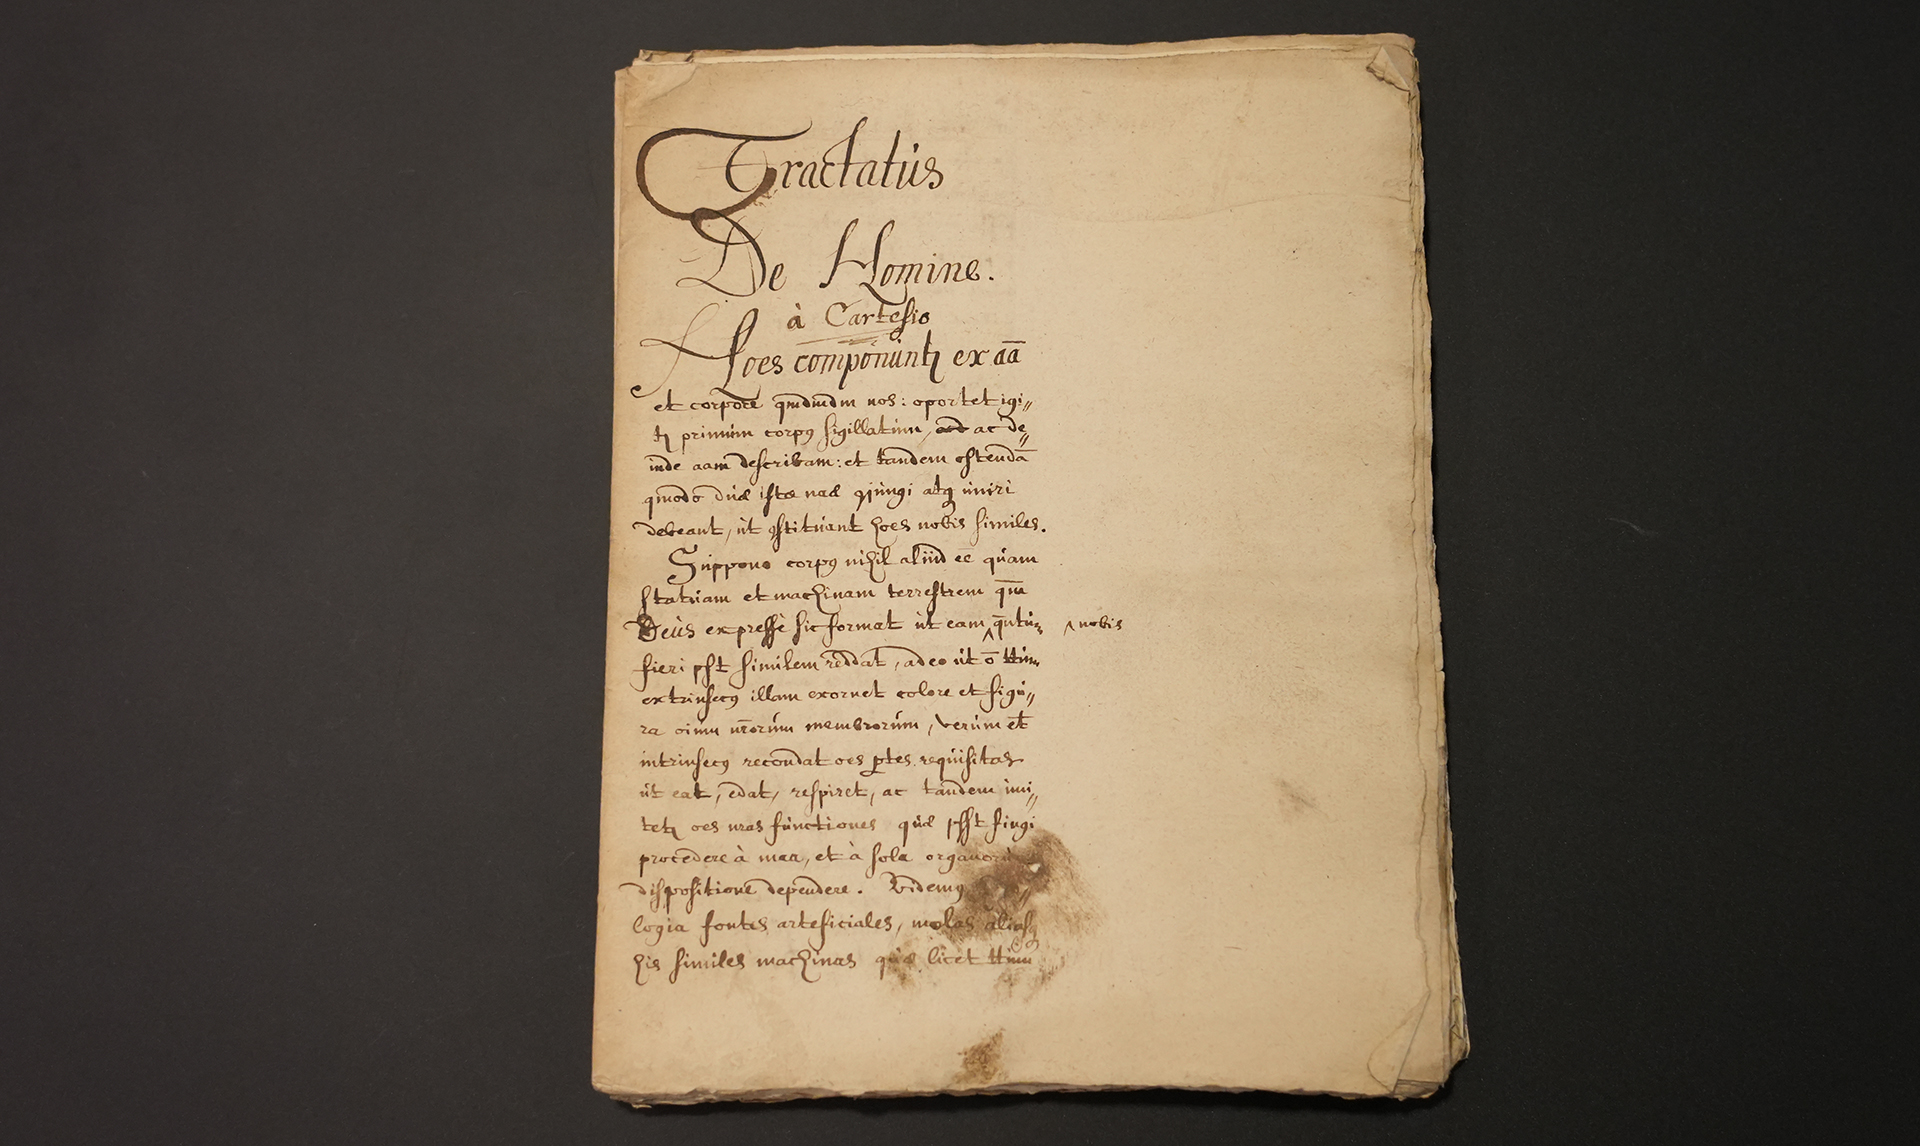 Tractatus
De Homine.
à Cartesio
Hoes componunt ex aā
et corpore qmdmdm nos: oportet igi〃
tr primùm corp9 sigillatim, ac de〃
inde aam describam: et tandem ostendā
qmodo duæ istæ naæ 9jungi atq uniri
debeant, ut 9stituant hoes nobis similes.
Suppono corp9 nihil aliud eē quam
statuam et machinam terrestrem qm̄
Deus expressè sic format ut eam ^ qn̄tum ^ nobis
fieri pst similem reddat, adeo ut ō ttum
extrinsec9 illam exornet colore et figu〃
ra oium nrōrum membrorum, verùm et
intrinsec9 recondat oes ptes requisitas
ut eat, edat, respiret, ac tandem imi〃
tetr oes nras functiones quæ psst fingi
procedere à maa, et à sola organorum
dispositione dependere. Videmq
logia fontes arteficiales, molas aliasq
his similes machinas quæ licet ttum